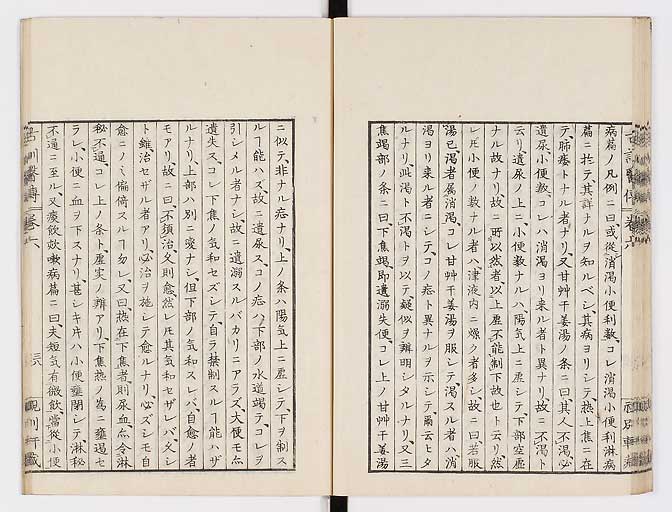 病篇ノ凡例ニ曰或從消渇小便利數コレ消渇小便利淋病
篇ニ於テ、其詳ナルヲ知ルベシ、其病ヨリシテ、熱上焦ニ在
テ、肺痿トナル者ナリ、又甘艸干姜湯ノ条ニ曰、其人不渇、必
遺尿、小便數、コレハ消渇ヨリ來ル者ト異ナリ、故ニ不渇ト
云リ、遺尿ノ上ニ、小便數ナルハ、陽気上ニ虚シテ、下部空虚
ナル故ナリ、故ニ所以然者以上虚不能制下故也ト云リ、然
レ𪜈小便ノ數ナル者ハ、津液内ニ燥ク者多シ、故ニ曰、若服
湯已渇者屬消渇、コレ甘艸干姜湯ヲ服シテ、渇スル者ハ、消
渇ヨリ來ル者ニシテ、コノ痿ト異ナルヲ示シテ、爾云ヒタ
ルナリ、此渇ト不渇トヲ以テ、疑似ヲ辨明シタルナリ、又三
焦竭部ノ条ニ曰、下焦竭即遺溺失便、コレ上ノ甘艸干姜湯
ニ似テ、非ナル痿ナリ、上ノ条ハ陽気上ニ虚シテ、下ヲ制ス
ルヿ能ハズ、故ニ遺尿ス、コノ痿ハ下部ノ水道竭テ、コレヲ
引シメル者ナシ、故ニ遺溺スルバカリニアラズ、大便モ亦
遺失ス、コレ下焦ノ気和セズシテ、自ラ禁制スルヿ能ハザ
ルナリ、上部ハ別ニ変ナシ、但下部ノ気和スレバ、自愈ノ者
モアリ、故ニ曰、不須治、久則愈、然レ𪜈其気和セザレバ、久シ
ト雖治セザル者アリ、必治ヲ施シテ愈ルナリ、必ズシモ自
愈ニノミ偏倚スルヿ勿レ、又曰、熱在下焦者則尿血、亦令淋
秘不通、コレ上ノ条ト、虚実ノ辨アリ、下焦熱ノ為ニ壅遏セ
ラレ、小便ニ血ヲ下スナリ、甚シキ片ハ小便壅閉シテ淋秘
不通ニ至ル、又痰飲欬嗽病篇ニ曰、夫短気有微飲、當從小便